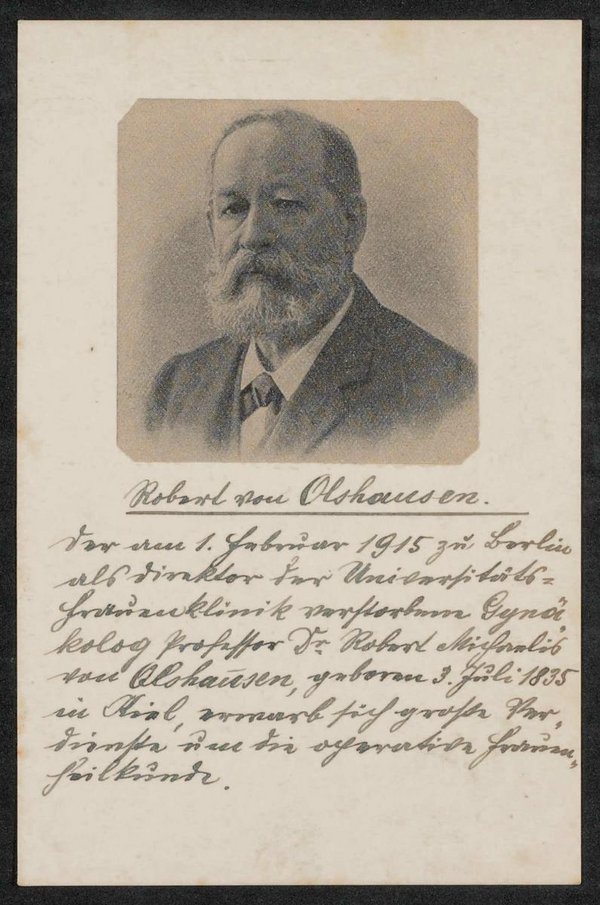 Robert von Olshausen.
Der am 1. Februar 1915 zu Berlin
als Direktor der Universitäts=
frauenklinik verstorbene Gynä=
kolog Professor Dr. Robert Michaelis
von Olshausen, geboren 3. Juli 1835
in Kiel, erwarb sich große Ver=
dienste um die operative Frauen=
heilkunde.